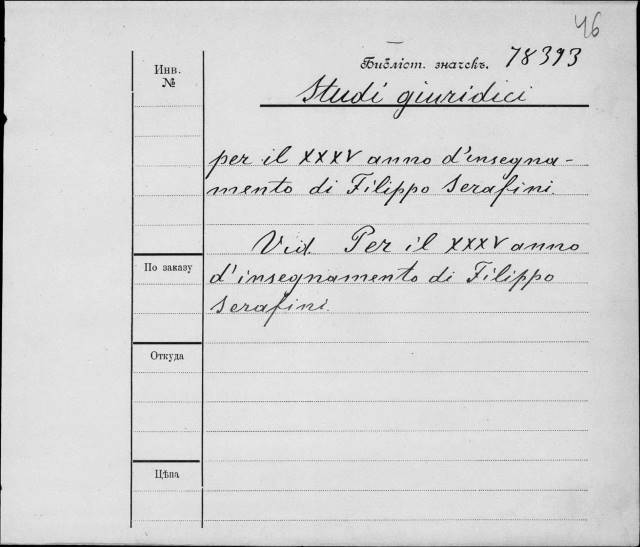 46
Библіот. значекъ. 78393
Инв.
№
Studi giuridici
per il XXXV anno d'insegna-
mento di Filippo Serafini.
Vid. Per il XXXV anno
По заказу
d'insegnamento di Filippo
Serafini.
Откуда
Цѣна